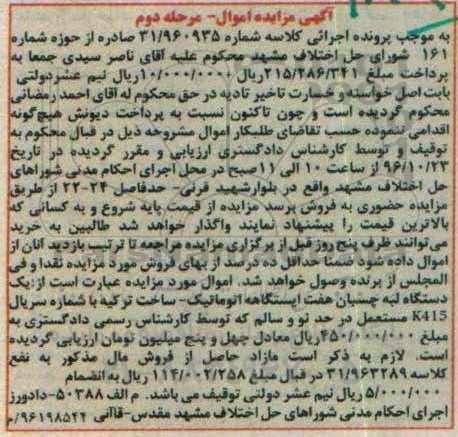 آگهی مزایده اموال- مرحله دوم
به موجب پرونده اجرائی کلاسه شماره ۳۱/۹۶۰۹۳۵ صادره از حوزه شماره
۱۶۱ شورای حل اختلاف مشهد محکوم علیه آقای ناصر سیدی جمعا به
پرداخت مبلغ ۲۱۵/۲۸۶/۳۴۱ریال و ۱۰/۰۰۰/۰۰۰ریال نیم عشردولتی
بابت اصل خواسته و خسارت تاخیر تادیه در حق محکوم له آقای احمد رمضانی
محکوم گردیده است و چون تاکنون نسبت به پرداخت دیونش هیچگونه
اقدامی ننموده حسب تقاضای طلبکار اموال مشروحه ذیل در قبال محکوم به
توقیف و توسط کارشناس دادگستری ارزیابی و مقرر گردیده در تاریخ
۹۶/۱۰/۲۳ از ساعت ۱۰ الی ۱۱صبح در محل اجرای احکام مدنی شوراهای
حل اختلاف مشهد واقع در بلوارشهید قرنی- حدفاصل ۲۴-۲۲ از طریق
مزایده حضوری به فروش برسد مزایده از قیمت پایه شروع و به کسانی که
بالاترین قیمت را پیشنهاد نمایند واگذار خواهد شد طالبین به خرید
می‌توانند ظرف پنج روز قبل از برگزاری مزایده مراجعه تا ترتیب بازدید آنان از
اموال داده شود ضمنا حداقل ده درصد از بهای فروش مورد مزایده نقدا و فی
المجلس از برنده وصول خواهد شد. اموال مورد مزایده عبارت است از:یک
دستگاه لبه چسبان هفت ایستگاهه اتوماتیک- ساخت ترکیه با شماره سریال
K415 مستعمل در حد نو و سالم که توسط کارشناس رسمی دادگستری به
مبلغ ۴۵۰/۰۰۰/۰۰۰ریال معادل چهل و پنج میلیون تومان ارزیابی گردیده
است. لازم به ذکر است مازاد حاصل از فروش مال مذکور به نفع
کلاسه ۳۱/۹۶۳۲۸۹ در قبال مبلغ ۱۱۴/۰۰۲/۲۵۸ ریال به انضمام
۵/۰۰۰/۰۰۰ ریال نیم عشر دولتی توقیف می باشد. م الف ۵۰۳۸۸-دادورز
اجرای احکام مدنی شوراهای حل اختلاف مشهد مقدس-قاآنی ۹۶۱۹۸۵۴۴/م